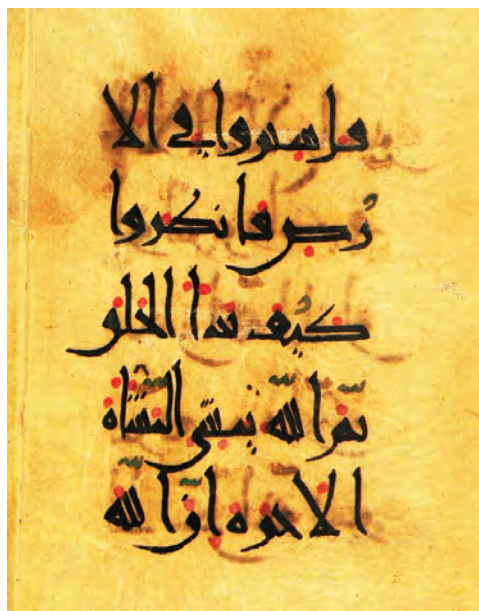 قل سيروا في الا
رض فانظروا
كيف بدأ الخلق
ثمّ اللّه ينشئ النّشأة
الاخرة إنّ اللّه